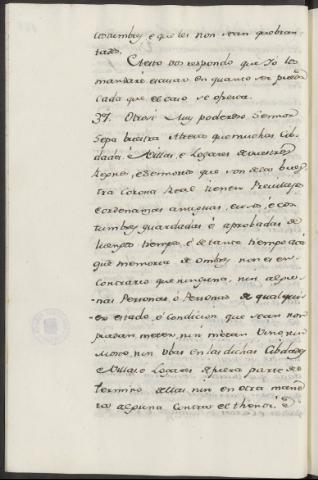 costumbres e que les non sean quebran-
tadas.
A esto vos respondo que Yo los
mandaré escusar en quanto ser pueda
cada que el caso se ofresca.
37. Otrosi Muy poderoso Sennor
Sepa vuestra Alteza que muchas Cib-
dades, é Villas, e Logares de vuestros
Regnos, e Sennorios que son de la bues-
tra Corona Real tienen Previllejos
é ordenanzas antiguas, e usos, é cos-
tumbres guardadas é aprobadas de
luengo tiempo, é de tanto tiempo acá
que memoria de ombres non es en
Contrario que ningunas, nin algu-
nas Personas, ó Personas de qualqui-
er estado, ó Condicion que sean non
puedan meter, nin metan Vino, nin
Mosto, nin Ubas en las dichas Cibdades
é Villas, e Logares de fuera parte de
termino dellas nin en otra mane-
ra alguna Contra el thenor é